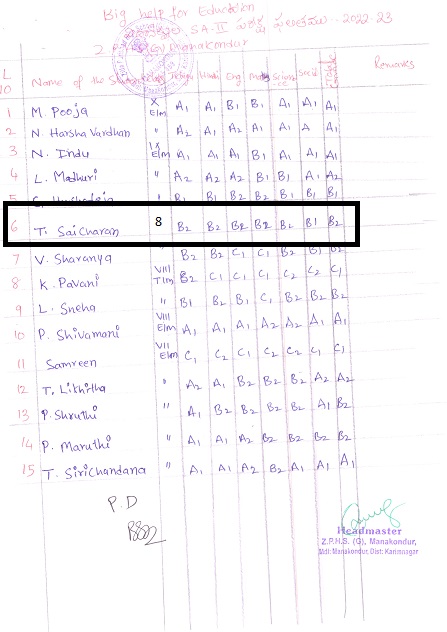 Big help for Education
SA-II పరీక్ష ఫలితములు - 2022-23
Z.P.H.S (G) Manakondur
Name of the Telugu Hindi Eng Maths Science Social Grade Remarks
1 M. Pooja X E/m A1 A1 B1 B1 A1 A1 A1
2 N. Harsha Vardhan " A2 A1 A2 A1 A1 A A1
3 N. Indu IX E/m A1 A1 A1 B1 A1 A1 A1
4 L. Madhuri " A2 A2 A2 B1 B1 A1 A2
5 " B1 B1 B2 B2 B1 B1 B1
6 T. Saicharan 8 B2 B2 B2 B2 B2 B1 B2
7 V. Sharanya " B2 B2 C1 C1 B2
8 K. Pavani VIII T/m B2 C1 C1 C1 C1 C1 C1
9 L. Sneha " B1 B2 B1 C1 B2 B1 B2
10 P. Shivamani VIII E/m A1 A1 A2 A2 A2 A1 A1
11 Samreen VII E/m C1 C2 C1 C2 C2 C1 C1
12 T. Likhitha " A2 A1 B2 B2 B2 A2 A2
13 P. Shruthi " A1 B2 B2 B2 B2 A1 B2
14 P. Maruthi " A1 A1 A2 B2 B2 B2 B2
15 T. Sirichandana " A1 A1 A2 B2 A1 A1 A1
P.D
Headmaster
Z.P.H.S. (G), Manakondur,
Mdl: Manakondur, Dist: Karimnagar